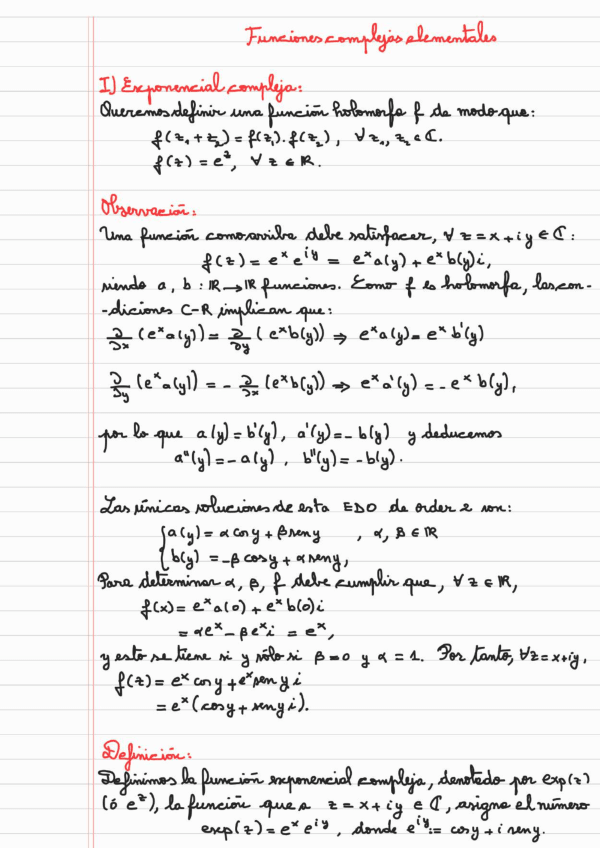 Funciones complejas elementales
I) Exponencial compleja:
Queremos definir una función holomorfa f de modo que:
f(z₁+z₂) = f(z₁).f(z₂), ∀ z₁, z₂ ∈ ℂ.
f(z) = eᶻ, ∀ z ∈ ℝ.
Observación:
Una función como arriba debe satisfacer, ∀ z = x + iy ∈ ℂ:
f(z) = eˣ e^{iy} = eˣ a(y) + eˣ b(y) i,
siendo a, b : ℝ → ℝ funciones. Como f es holomorfa, las con-
-diciones C-R implican que:
∂/∂x (eˣ a(y)) = ∂/∂y (eˣ b(y)) ⇒ eˣ a(y) = eˣ b'(y)
∂/∂y (eˣ a(y)) = - ∂/∂x (eˣ b(y)) ⇒ eˣ a'(y) = - eˣ b(y),
por lo que a(y) = b'(y), a'(y) = - b(y) y deducemos
a''(y) = - a(y) , b''(y) = - b(y).
Las únicas soluciones de esta EDO de order 2 son:
{ a(y) = α cos y + β sen y , α, β ∈ ℝ
b(y) = -β cos y + α sen y,
Para determinar α, β, f debe cumplir que, ∀ z ∈ ℝ,
f(x) = eˣ a(0) + eˣ b(0) i
= α eˣ - β eˣ i = eˣ,
y esto se tiene si y sólo si β = 0 y α = 1. Por tanto, ∀ z = x + iy,
f(z) = eˣ cos y + eˣ sen y i
= eˣ (cos y + sen y i).
Definición:
Definimos la función exponencial compleja, denotado por exp(z)
(ó eᶻ), la función que a z = x + iy ∈ ℂ, asigna el número
exp(z) = eˣ e^{iy}, donde e^{iy} := cos y + i sen y.